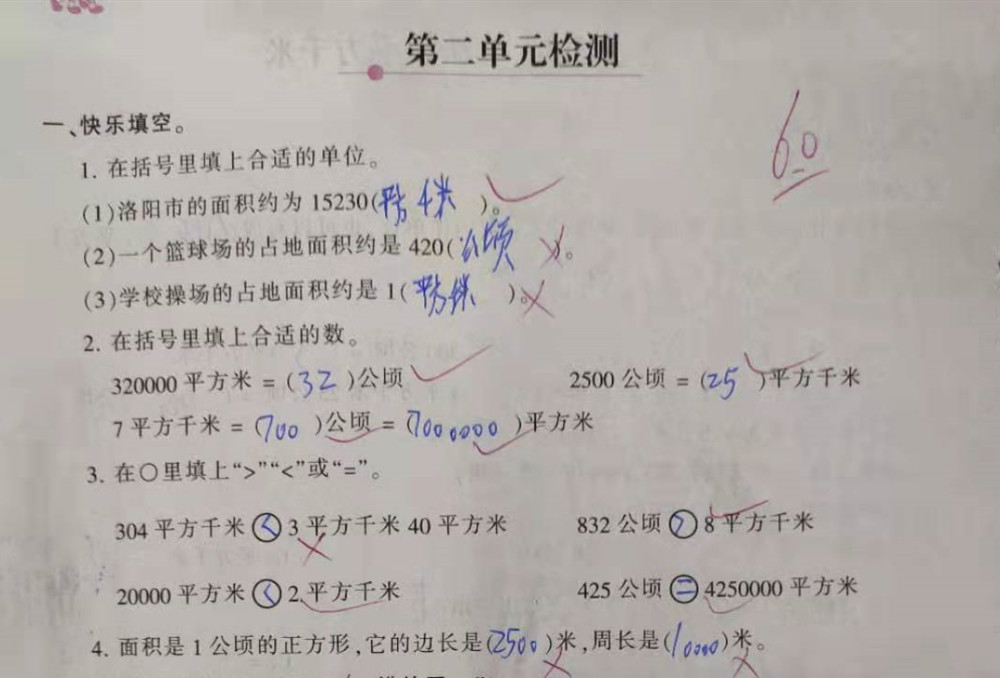 第二单元检测
60
一、快乐填空。
1. 在括号里填上合适的单位。
(1)洛阳市的面积约为 15230(平方千米)。
(2)一个篮球场的占地面积约是 420(公顷)。
(3)学校操场的占地面积约是 1(平方千米)。
2. 在括号里填上合适的数。
320000 平方米 = (32)公顷 2500 公顷 = (25)平方千米
7 平方千米 = (700)公顷 = (7000000)平方米
3. 在○里填上“>”“<”或“=”。
304 平方千米 < 3 平方千米 40 平方米 832 公顷 > 8 平方千米
20000 平方米 < 2 平方千米 425 公顷 = 4250000 平方米
4. 面积是 1 公顷的正方形,它的边长是(2500)米,周长是(10000)米。